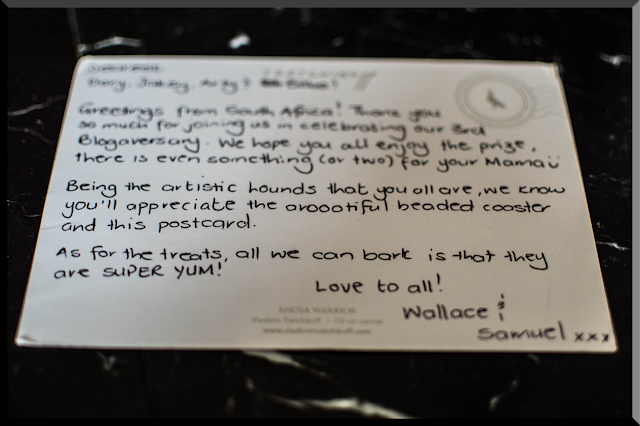 Greetings from South Africa! Thank you
so much for joining us in celebrating our 3rd
Blogaversary. We hope you all enjoy the prize,
there is even something (or two) for your Mama
Being the artistic hounds that you all are, we know
you'll appreciate the aroootiful beaded coaster
and this postcard.
As for the treats, all we can bark is that they
are SUPER YUM!
Love to all!
Wallace &
Samuel xxx
XHOSA WARRIOR
Vladimir Tretchikoff | Oil on canvas
www.vladimirtretchikoff.com